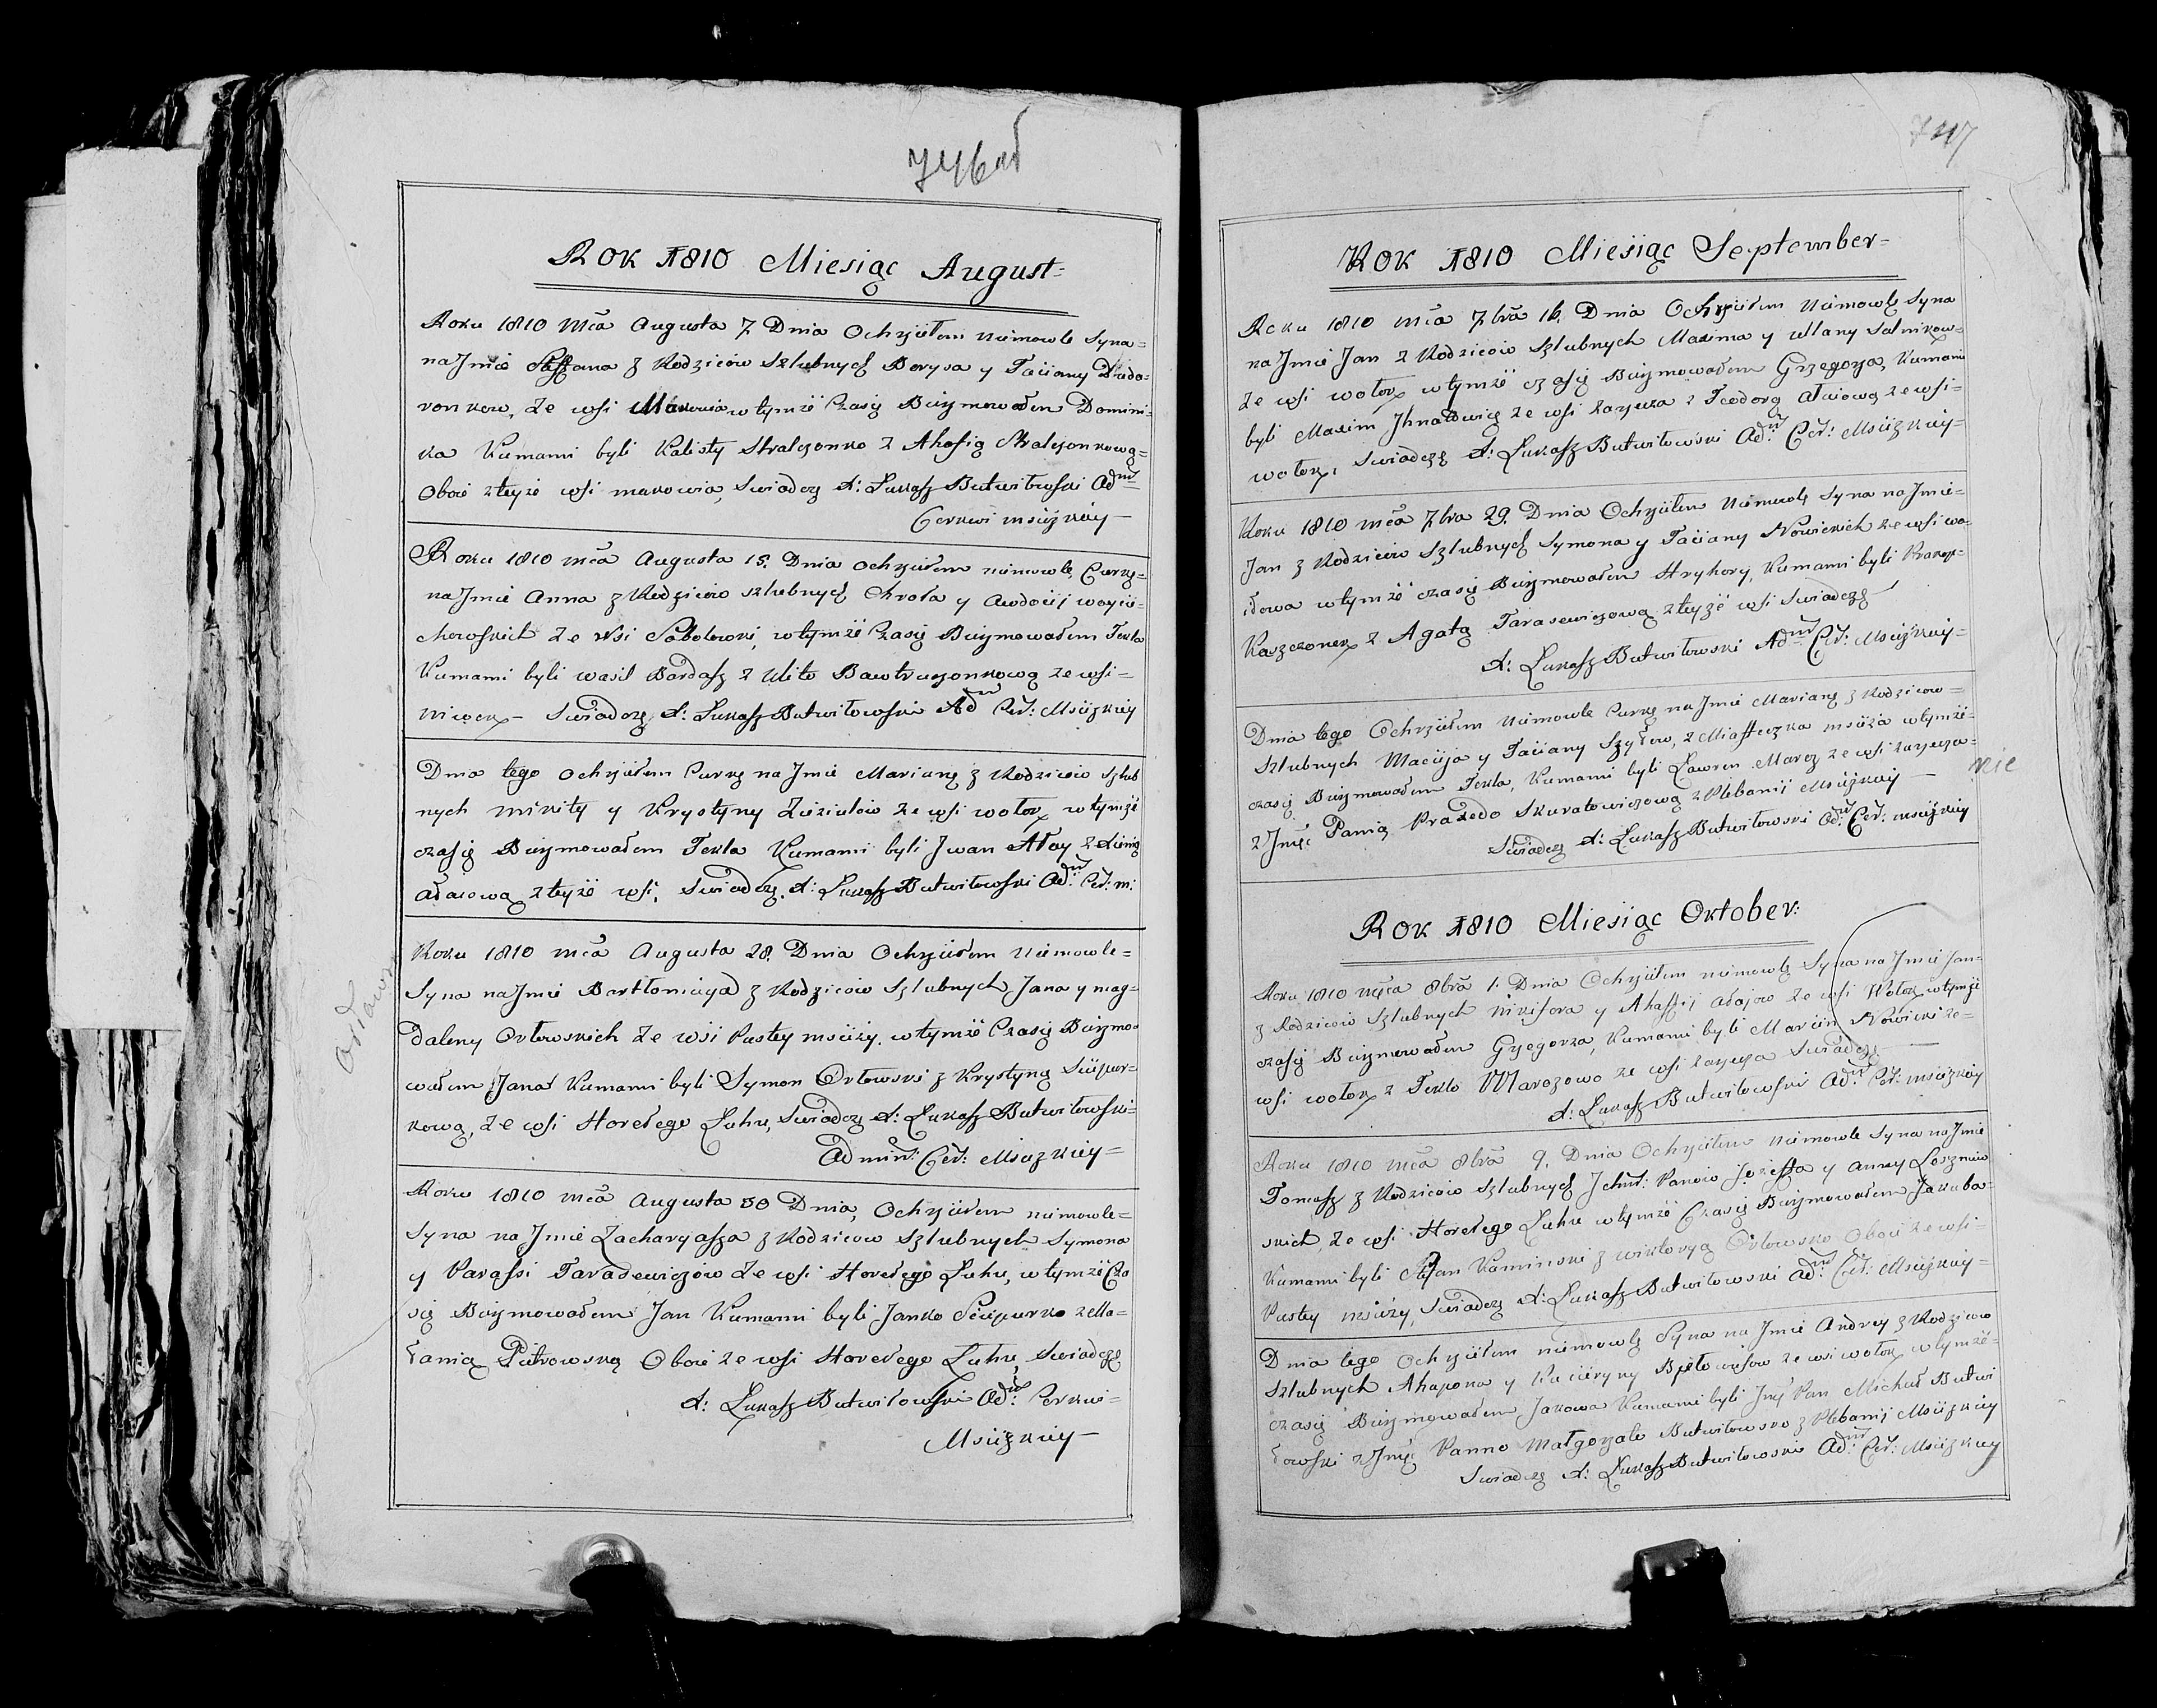 746об
Rok 1810 Miesiąc August
Roku 1810 mca Augusta 7. Dnia Ochrzciłem niemowle Syna
na Jmie Steffana z Rodziców Szlubnych Borysa y Taciany
kow, Ze wsi Makowia w tymże Czasię Bierzmowałem Domini-
ka Kumami byli Kalisty Stralczonko z Ahafią Stralczonkową
Oboie z teyże wsi makowia, Swiadczę X: Łukasz Butwiłowski Adm
Cerkwi msciżkiey
Roku 1810 mca Augusta 15. Dnia ochrzciłem niemowlę Curkę
na Jmie Anna z Rodziców szlubnych Chroła y Awdocij woycie-
chowskich Ze Wsi Sobolowki, w tymże Czasię Bierzmowałem Tekla
Kumami byli wasil Bardasz z Ulito Bawtruczonkową ze wsi
Niwek Swiadczę X: Łukasz Butwiłowski Ad Cer: Msciżkiey
Dnia tego ochrzciłem Curkę na Jmie Mariannę z Rodziców szlub
nych mikity y Krystyny Ziuziulow ze wsi wołok w tymże
czasię Bierzmowałem Tekla Kumami byli Jwan Ałay z
Ałaiową z teyże wsi, Swiadczę X: Łukasz Butwiłowski Ad: Cer: m:
Roku 1810 mca Augusta 28. Dnia Ochrzciłem Niemowle
Syna na Jmie Bartłomieya z Rodziców Szlubnych Jana y mag-
daleny Orłowskich Ze wsi Pustey msciży. w tymże Czasię Bierzmo-
wałem Jana Kumami byli Symon Orłowski z Krystyną Sciepur-
kową, Ze wsi Horełego Luhu, Swiadczę X: Łukasz Butwiłowski
Admin: Cer: Msciżkiey
Orłowsk
Roku 1810 mca Augusta 30 Dnia, Ochrzciłem niemowle
Syna na Jmie Zacharyasza z Rodziców Szlubnych Symona
y Parassi Tarasewiczów Ze wsi Horełego Luhu, w tymże Cza
się Bierzmowałem Jan Kumami byli Janko Sciepurko z Ma-
łanią Piotrowską Oboie ze wsi Horełego Luhu, Swiadczę
X: Łukasz Butwiłowski Ad: Cerkwi
Msciżkiey
747
Rok 1810 Miesiąc September
Roku 1810 mca 7bra 16. Dnia Ochrzciłem Niemowlę Syna
na Jmie Jan z Rodziców Szlubnych Maxima y Ullany Salnikow
Ze wsi wołok w tymże czasię Bierzmowałem Grzegorza, Kumami
byli Maxim Jhnatowicz ze wsi z Teodorą Ałaiową ze wsi
wołok, Swiadczę X: Łukasz Butwiłowski Ad: Cer: Msciżkiey
Roku 1810 mca 7bra 29. Dnia Ochrzciłem Niemowlę Syna na Jmie
Jan z Rodziców Szlubnych Symona y Taciany Nowickich ze wsi wo-
w tymże czasię Bierzmowałem Hryhory, Kumami byli
Kaszczonek z Agatą Tarasewiczową z teyże wsi Swiadczę
X: Łukasz Butwiłowski Ad: Cer: Msciżkiey
Dnia tego Ochrzciłem Niemowle Curkę na Jmie Mariannę z Rodziców
Szlubnych Macieja y Taciany Szyłow, z Miasteczka msciża w tymże
czasię Bierzmowałem Tekla, Kumami byli Ławren Maroz ze wsi
z Jmc Panią Praxedo Skuratowiczową z Plebanij Msciżkiey
Swiadczę X: Łukasz Butwiłowski Ad: Cer: msciżkiey
Rok 1810 Miesiąc Oktober
Roku 1810 mca 8bra 1. Dnia Ochrzciłem niemowlę Syna na Jmie Jan
z Rodziców Szlubnych Nikifora y Ahaffij Ałajow Ze wsi Wołok w tymże
czasię Bierzmowałem Grzegorza, Kumami byli Marcin Nowicki ze
wsi wołok z Teklo Marozowo ze wsi Swiadczę
X: Łukasz Butwiłowski Ad: Cer: msciżkiey
Roku 1810 mca 8bra 9. Dnia Ochrzciłem Niemowle Syna na Jmie
Tomasz z Rodziców Szlubnych Panow Jozeffa y Anny
skich, Ze wsi Horełego Luhu w tymże Czasię Bierzmowałem Jakuba
Kumami byli Stefan Kaminski z wiktoryą Orłowsko Oboie ze wsi
Pustey msciży, Swiadczę X: Łukasz Butwiłowski Ad: Cer: Msciżkiey
Dnia tego Ochrzciłem niemowlę Syna na Jmie Andrey z Rodziców
Szlubnych Ahapona y Kacieryny ze wsi wołok w tymże
czasię Bierzmowałem Jakowa Kumami byli Jmc Pan Michał Butwi
łowski z Jmc Panno Małgorzato Butwiłowsko z Plebanij Msciżkiey
Swiadczę X: Łukasz Butwiłowski Ad: Cer: Msciżkiey